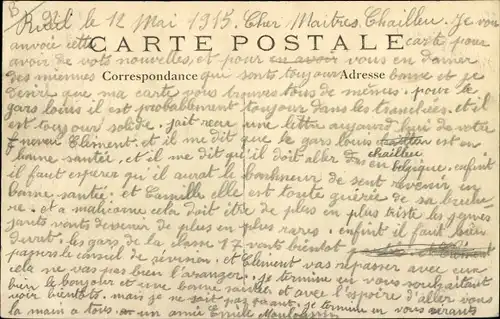 Riad le 12 Mai 1915. Cher Maitres Chailleu. Je vou
anvoie cette carte pour
CARTE POSTALE
avoir de vots nouvelles, et pour en avoir vous en damer
des miennes qui sont toujour bonne et je
Correspondance Adresse
desire que ma carte vous trouves tous de mêmes. pour le
gars louis il est probablement toujour dans les tranchées. et il
est toujour solide. jait recu une lettre aujourd'hui de votre
neveu Clément. et il me dit que le gars louis est en
bonne santée. et il me dit qu'il doit aller en belgique. enfint
chailleu
il faut esperer qu'il aurat le bonheur de sent revenir en
bonne santée, et Camille elle est toute guérie de sa
re. et a malicorne cela doit être de plus en plus triste les jeunes
jants vont devenir de plus en plus rares. enfint il faut bien
les gars de la classe 17 vont bientot
le conseil de révision. et Clément vas repasser avec eux
cela ne vas pas bien l'aranger. je termine en vous souhaitant
bien le bonjour et une bonne santée, et avec l'espoire d'aller vous
voir bientots. mais je ne sait pas quant. je termine en vous serants
la main a tous. un amie Emile